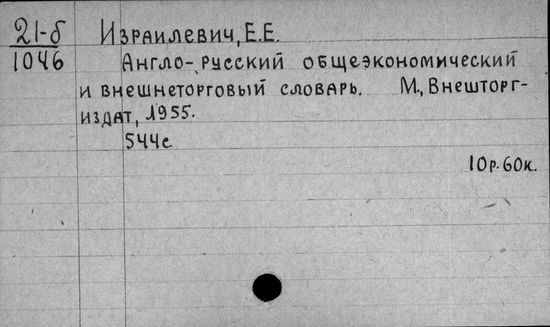 21-б
1046
Израилевич, Е.Е.
Англо-русский общеэкономический
и внешнеторговый словарь. М., Внешторг-
издат, 1955.
544с
10р.60к.